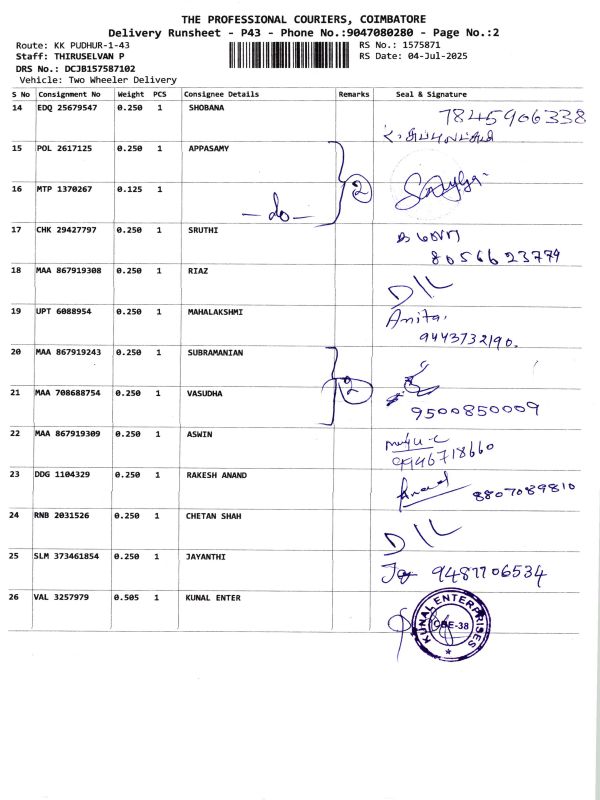 THE PROFESSIONAL COURIERS, COIMBATORE
Delivery Runsheet - P43 - Phone No.:9047080280 - Page No.:2
Route: KK PUDHUR-1-43 RS No.: 1575871
Staff: THIRUSELVAN P RS Date: 04-Jul-2025
DRS No.: DCJB157587102
Vehicle: Two Wheeler Delivery
S No Consignment No Weight PCS Consignee Details Remarks Seal & Signature
14 EDQ 25679547 0.250 1 SHOBANA 7845906338
15 POL 2617125 0.250 1 APPASAMY
16 MTP 1370267 0.125 1 -do- 2
17 CHK 29427797 0.250 1 SRUTHI
8056623779
18 MAA 867919308 0.250 1 RIAZ D/L
19 UPT 6088954 0.250 1 MAHALAKSHMI Anita.
9443732190.
20 MAA 867919243 0.250 1 SUBRAMANIAN
21 MAA 708688754 0.250 1 VASUDHA 2 9500850009
22 MAA 867919309 0.250 1 ASWIN
9946718660
23 DDG 1104329 0.250 1 RAKESH ANAND 8807089810
24 RNB 2031526 0.250 1 CHETAN SHAH D/L
25 SLM 373461854 0.250 1 JAYANTHI 9487706534
26 VAL 3257979 0.505 1 KUNAL ENTER KUNAL ENTERPRISES CBE-38